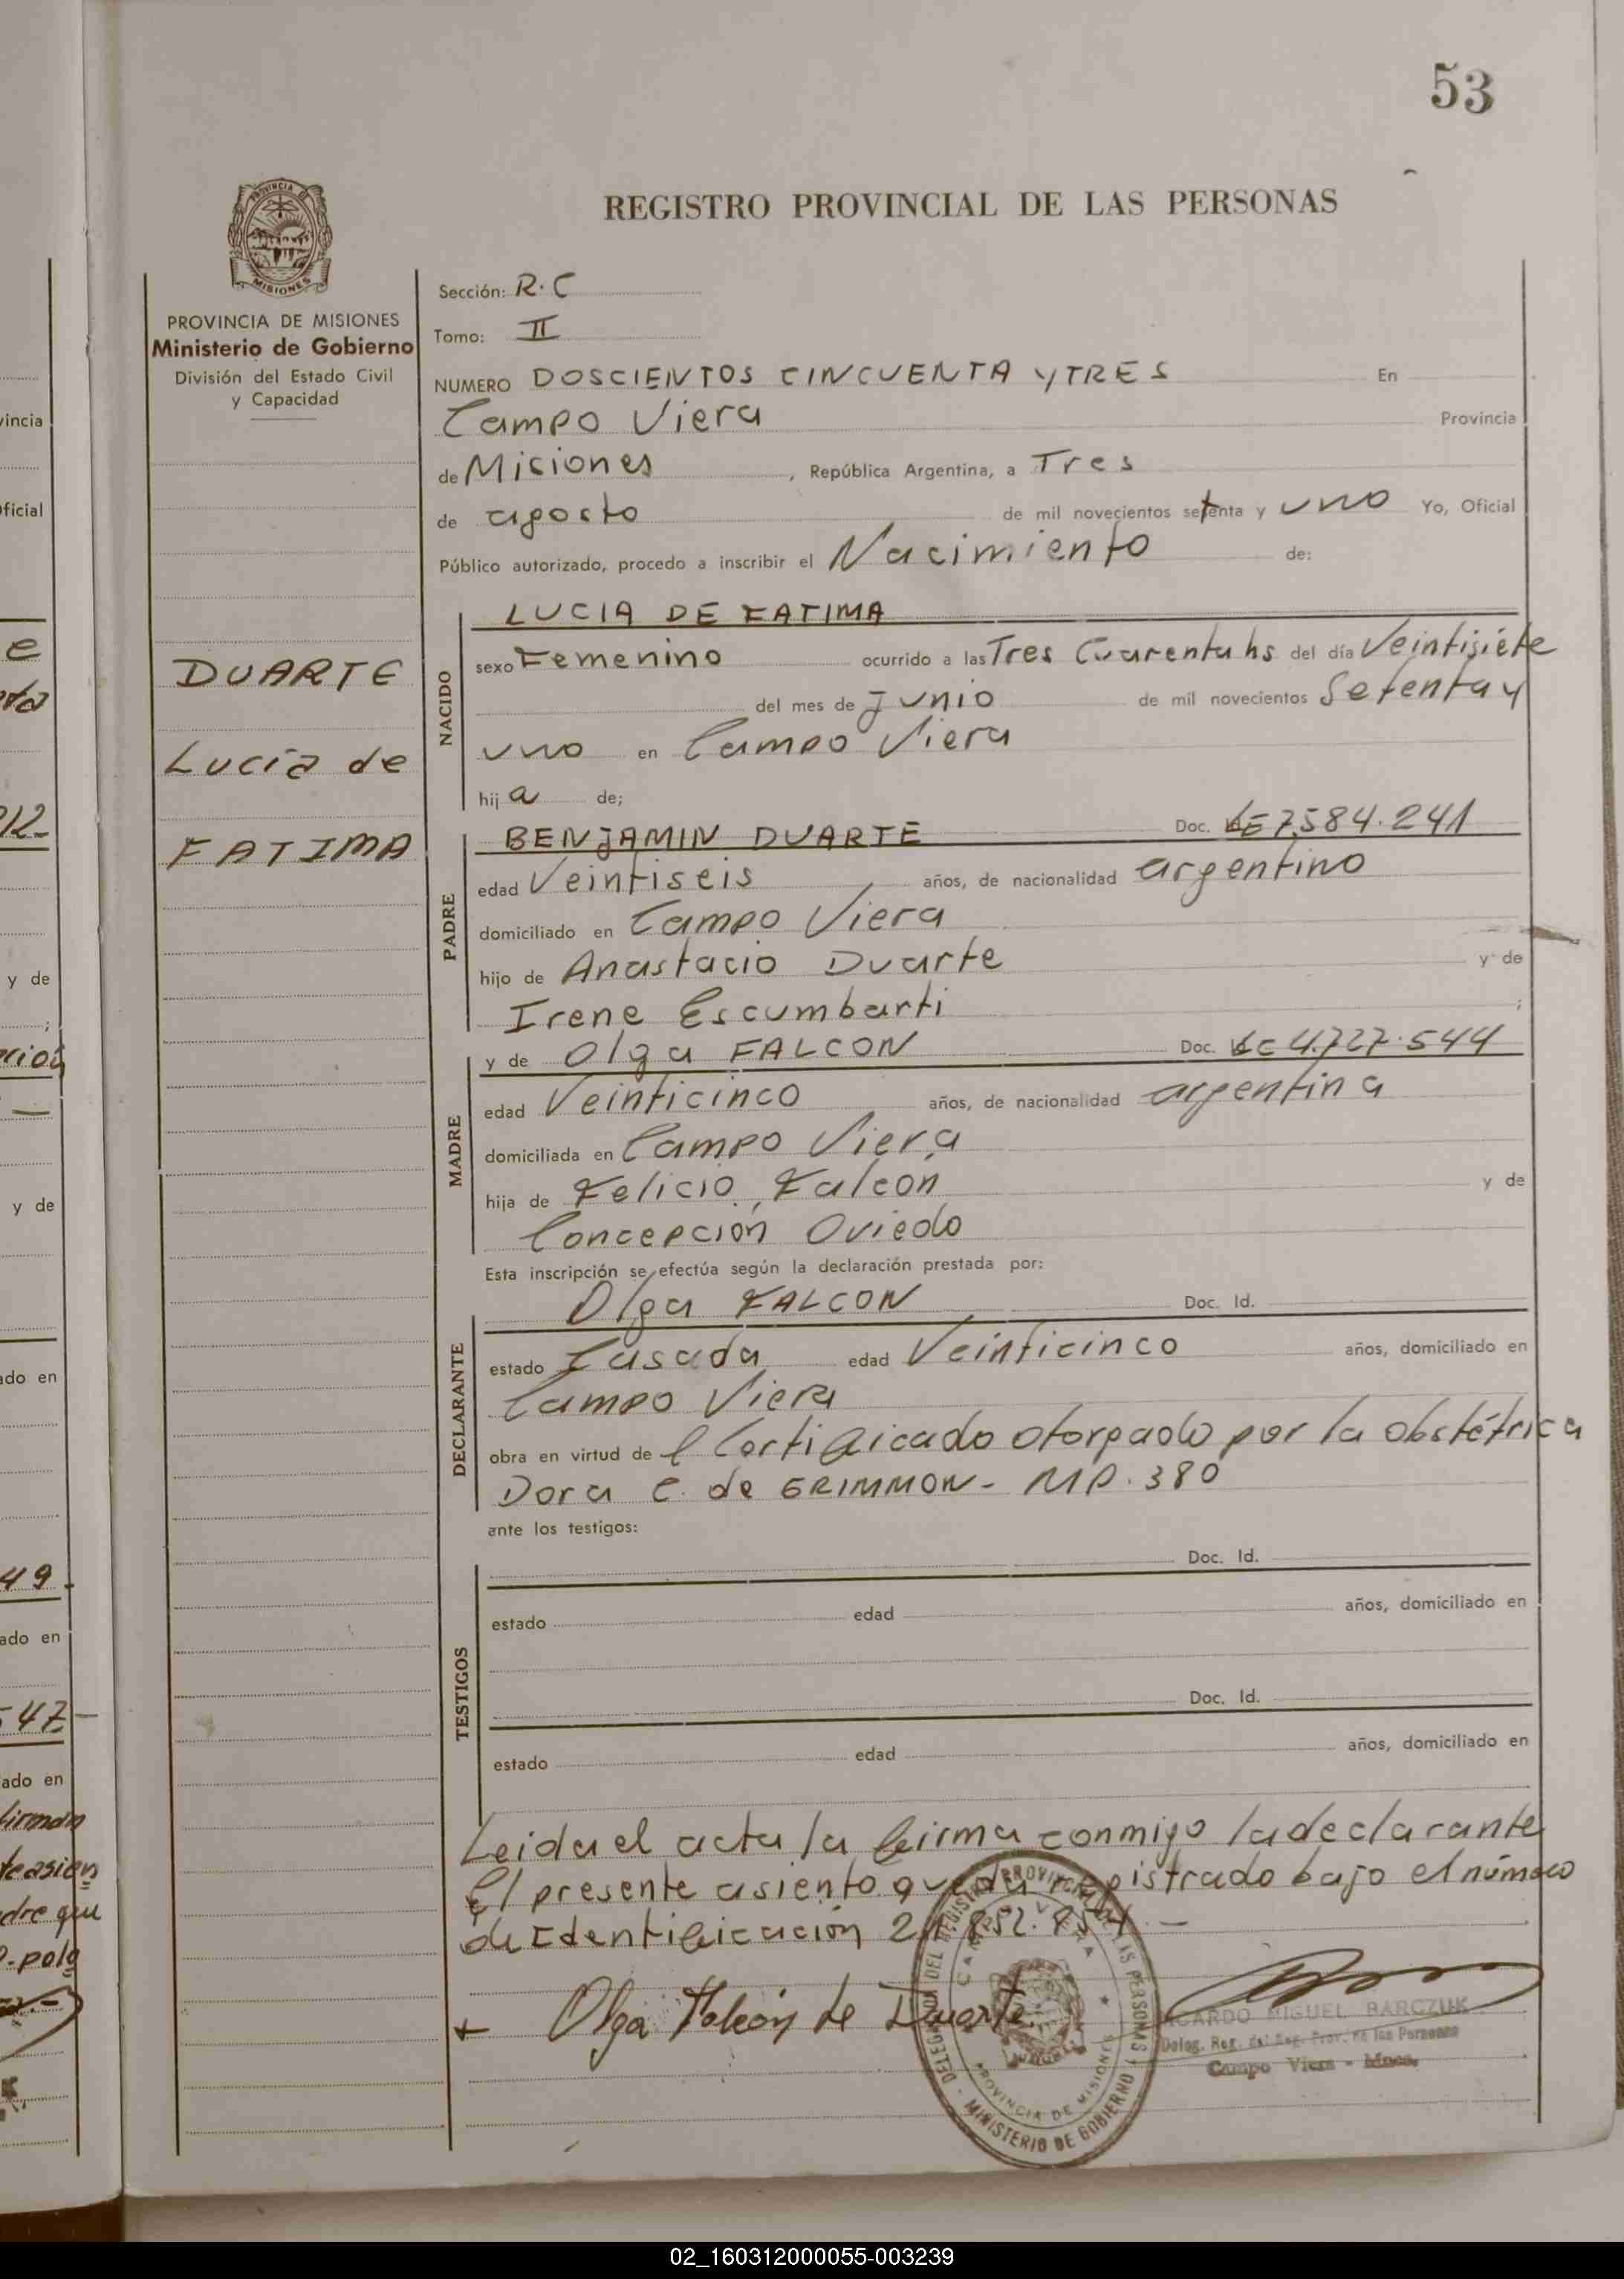 53
REGISTRO PROVINCIAL DE LAS PERSONAS
PROVINCIA
MISIONES
PROVINCIA DE MISIONES
Ministerio de Gobierno
División del Estado Civil
y Capacidad
DUARTE
Lucía de
FATIMA
Sección: R.C
Tomo: II
NUMERO DOSCIENTOS CINCUENTA Y TRES En
Campo Viera Provincia
de Misiones, República Argentina, a Tres
de agosto de mil novecientos setenta y uno Yo, Oficial
Público autorizado, procedo a inscribir el Nacimiento de:
NACIDO
LUCIA DE FATIMA
sexo Femenino ocurrido a las Tres Cuarenta hs del día Veintisiete
del mes de Junio de mil novecientos Setenta y
uno en Campo Viera
hij a de;
PADRE
BENJAMIN DUARTE Doc. LE 7.584.241
edad Veintiseis años, de nacionalidad argentino
domiciliado en Campo Viera
hijo de Anastacio Duarte y de
Irene Escumbarti ;
MADRE
y de Olga FALCON Doc. 4.727.544
edad Veinticinco años, de nacionalidad argentina
domiciliada en Campo Viera
hija de Felicio Falcón y de
Concepción Oviedo
Esta inscripción se efectúa según la declaración prestada por:
DECLARANTE
Olga FALCON Doc. Id.
estado Casada edad Veinticinco años, domiciliado en
Campo Viera
obra en virtud de l Certificado otorgado por la obstétrica
Dora C. de GRIMMON - MP. 380
ante los testigos:
TESTIGOS
Doc. Id.
estado edad años, domiciliado en
Doc. Id.
estado edad años, domiciliado en
Leida el acta la firma conmigo la declarante
El presente asiento queda registrado bajo el número
de Identificación
Olga Falcón de Duarte
DELEGACION DEL REGISTRO PROVINCIAL DE LAS PERSONAS
CAMPO VIERA
PROVINCIA DE MISIONES
MINISTERIO DE GOBIERNO
RICARDO MIGUEL BARCZUK
Deleg. Reg. del Reg. Prov. de las Personas
Campo Viera - Mnes.
vincia
Oficial
y de
y de
ado en
49
ado en
547-
ado en
firman
02_160312000055-003239